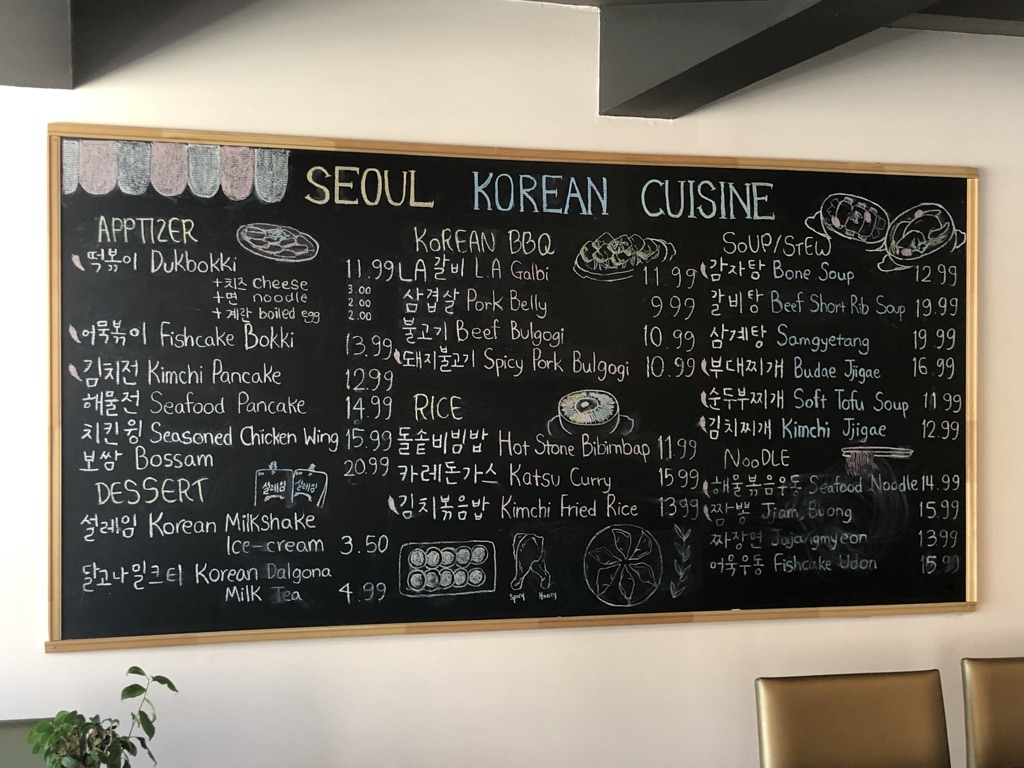 SEOUL KOREAN CUISINE
APPTIZER
떡볶이 Dukbokki 11.99
+치즈 cheese 3.00
+면 noodle 2.00
+계란 boiled egg 2.00
어묵볶이 Fishcake Bokki 13.99
김치전 Kimchi Pancake 12.99
해물전 Seafood Pancake 14.99
치킨윙 Seasoned Chicken Wing 15.99
보쌈 Bossam 20.99
DESSERT
설레임 설레임
설레임 Korean Milkshake
Ice-cream 3.50
달고나밀크티 Korean Dalgona
Milk Tea 4.99
KOREAN BBQ
LA갈비 L.A Galbi 11.99
삼겹살 Pork Belly 9.99
불고기 Beef Bulgogi 10.99
돼지불고기 Spicy Pork Bulgogi 10.99
RICE
돌솥비빔밥 Hot Stone Bibimbap 11.99
카레돈가스 Katsu Curry 15.99
김치볶음밥 Kimchi Fried Rice 13.99
Spicy Honey
SOUP/STEW
감자탕 Bone Soup 12.99
갈비탕 Beef Short Rib Soup 19.99
삼계탕 Samgyetang 19.99
부대찌개 Budae Jjigae 16.99
순두부찌개 Soft Tofu Soup 11.99
김치찌개 Kimchi Jjigae 12.99
NOODLE
해물볶음우동 Seafood Noodle 14.99
짬뽕 Jjam Buong 15.99
짜장면 Jajangmyeon 13.99
어묵우동 Fishcake Udon 15.99